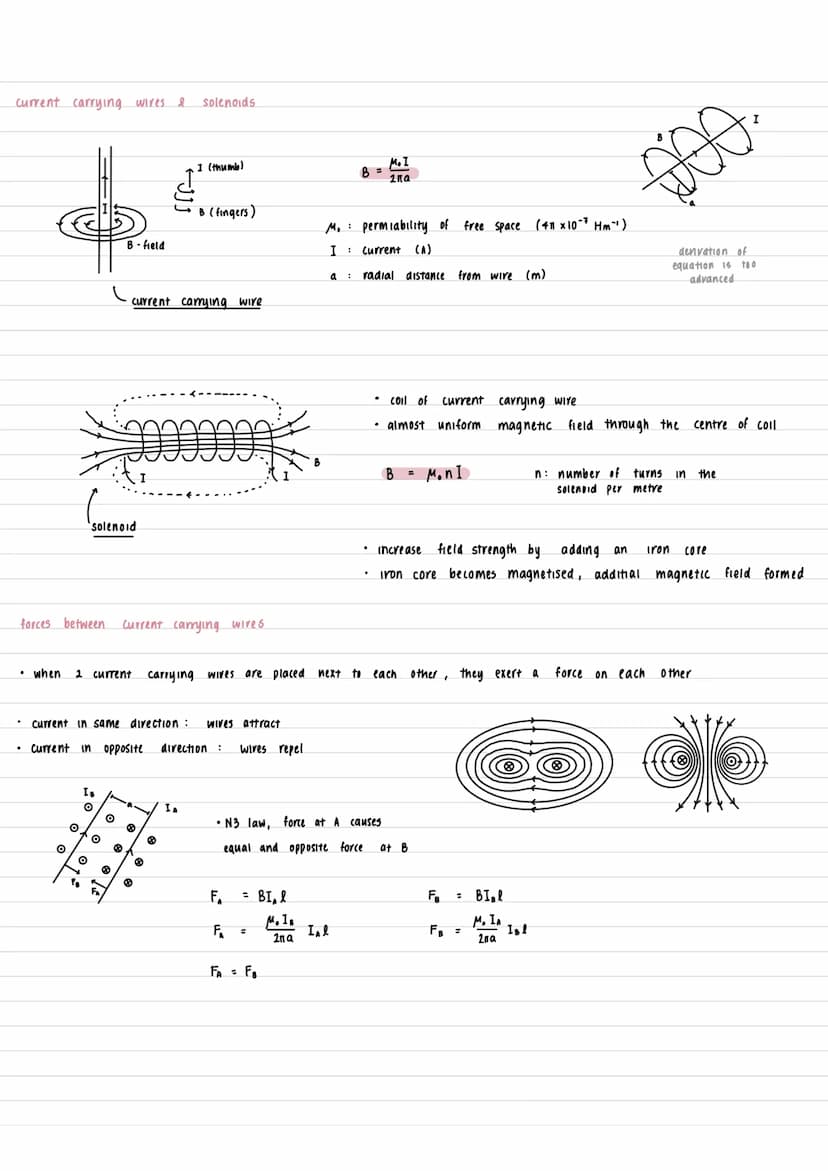 current carrying wires & solenoids
I (thumb)
B (fingers)
I
B - field
current carrying wire
B = μ₀I / 2πa
μ₀ : permiability of free space (4π x10⁻⁷ Hm⁻¹)
I : current (A)
a : radial distance from wire (m)
B
I
a
derivation of
equation is too
advanced
I
I
B
solenoid
• coil of current carrying wire
• almost uniform magnetic field through the centre of coil
B = μ₀nI
n: number of turns in the
solenoid per metre
• increase field strength by adding an iron core
• iron core becomes magnetised, additial magnetic field formed
forces between current carrying wires
• when 2 current carrying wires are placed next to each other, they exert a force on each other
• current in same direction : wires attract
• current in opposite direction : wires repel
I_B
a
I_A
F_B
F_A
• N3 law, force at A causes
equal and opposite force at B
F_A = BI_Aℓ
F_B = BI_Bℓ
F_A = μ₀I_B / 2πa I_Aℓ
F_B = μ₀I_A / 2πa I_Bℓ
F_A = F_B